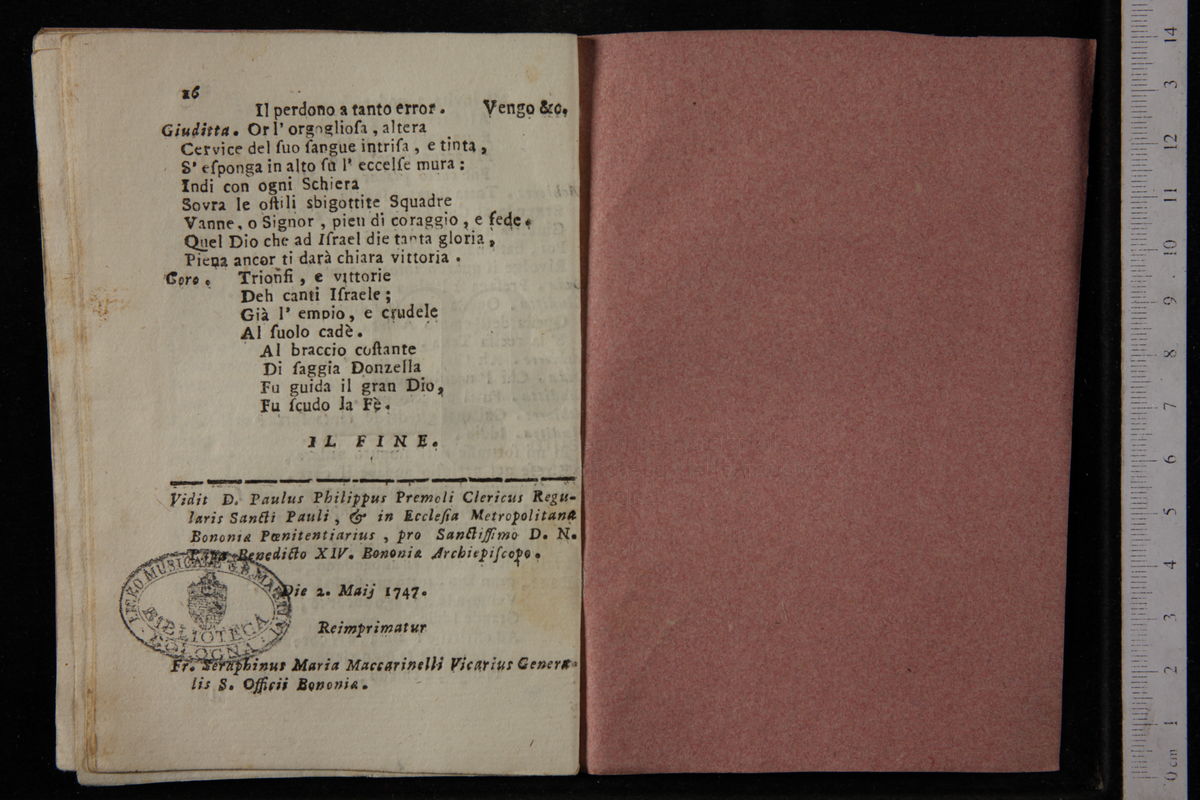 16
Il perdono a tanto error. Vengo &c.
Giuditta. Or l' orgogliosa, altera
Cervice del ſuo ſangue intriſa, e tinta,
S' eſponga in alto ſù l' eccelſe mura:
Indi con ogni Schiera
Sovra le oſtili sbigottite Squadre
Vanne, o Signor, pien di coraggio, e fede.
Quel Dio che ad Iſrael die tanta gloria,
Piena ancor ti darà chiara vittoria.
Coro. Trionfi, e vittorie
Deh canti Iſraele;
Già l' empio, e crudele
Al ſuolo cadè.
Al braccio coſtante
Di ſaggia Donzella
Fu guida il gran Dio,
Fu ſcudo la Fè.
IL FINE.
Vidit D. Paulus Philippus Premoli Clericus Regu-
laris Sancti Pauli, & in Eccleſia Metropolitana
Bononiæ Pœnitentiarius, pro Sanctiſſimo D. N.
Papa Benedicto XIV. Bononiæ Archiepiſcopo.
Die 2. Maij 1747.
Reimprimatur
Fr. Seraphinus Maria Maccarinelli Vicarius Genera-
lis S. Officii Bononiæ.
LICEO MUSICALE G. B. MARTINI
BIBLIOTECA
BOLOGNA
0 cm 1 2 3 4 5 6 7 8 9 10 11 12 3 14